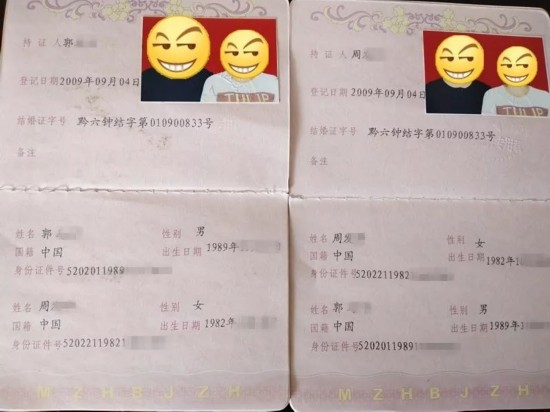 持 证 人 郭
登记日期 2009年09月04日
结婚证字号 黔六钟结字第010900833号
备注
姓名 郭 性别 男
国籍 中国 出生日期 1989年
身份证件号 5202011989
姓名 周 性别 女
国籍 中国 出生日期 1982年
身份证件号 52022119821
持 证 人 周
登记日期 2009年09月04日
结婚证字号 黔六钟结字第010900833号
备注
姓名 周发 性别 女
国籍 中国 出生日期 1982年1
身份证件号 5202211982
姓名 郭 性别 男
国籍 中国 出生日期 1989年
身份证件号 5202011989
M Z H B J Z H
M Z H B J Z H